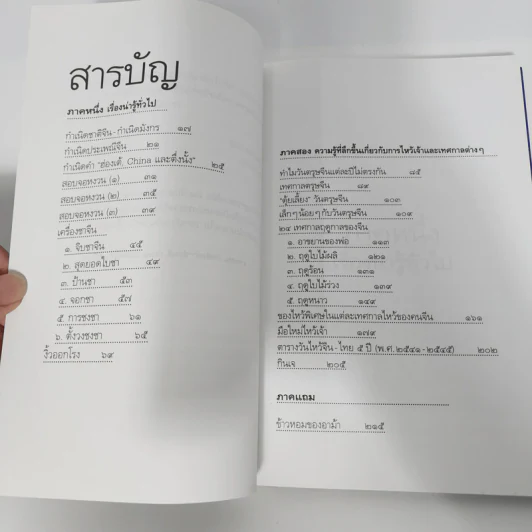 สารบัญ
ภาคหนึ่ง เรื่องน่ารู้ทั่วไป
กำเนิดชาติจีน-กำเนิดมังกร ๑๗
กำเนิดประเพณีจีน ๒๑
กำเนิดคำ "ฮ่องเต้, China และตึ่งนั้ง" ๒๕
สอบจอหงวน (๑) ๓๑
สอบจอหงวน (๒) ๓๕
สอบจอหงวน (๓) ๓๙
เครื่องชาจีน
๑. จิบชาจีน ๔๕
๒. สุดยอดใบชา ๔๙
๓. ป้านชา ๕๓
๔. จอกชา ๕๗
๕. การชงชา ๖๑
๖. ตั้งวงชงชา ๖๕
งิ้วออกโรง ๖๙
ภาคสอง ความรู้ที่ลึกขึ้นเกี่ยวกับการไหว้เจ้าและเทศกาลต่างๆ
ทำไมวันตรุษจีนแต่ละปีไม่ตรงกัน ๘๕
เทศกาลตรุษจีน ๘๙
"ตุ้ยเลี้ยง" วันตรุษจีน ๑๐๓
เล็กๆ น้อยๆ กับวันตรุษจีน ๑๐๙
๒๔ เทศกาลฤดูกาลของจีน
๑. อาชยานของพ่อ ๑๑๓
๒. ฤดูใบไม้ผลิ ๑๒๑
๓. ฤดูร้อน ๑๓๑
๔. ฤดูใบไม้ร่วง ๑๓๙
๕. ฤดูหนาว ๑๔๙
ของไหว้พิเศษในแต่ละเทศกาลไหว้ของคนจีน ๑๖๑
มือใหม่ไหว้เจ้า ๑๗๙
ตารางวันไหว้จีน-ไทย ๕ ปี (พ.ศ. ๒๕๔๑-๒๕๔๕) ๒๐๒
กินเจ ๒๐๕
ภาคแถม
ข้าวหอมของอาม้า ๒๑๕